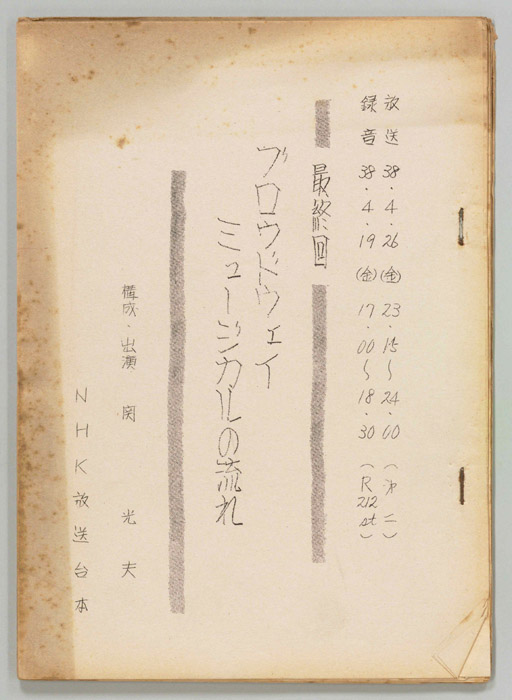 放送 38・4・26(金)23・15〜24・00(第二)
録音 38・4・19(金)17・00〜18・30(R212st)
最終回
ブロウドウェイ
ミュージカルの流れ
構成・出演 関 光夫
NHK放送台本